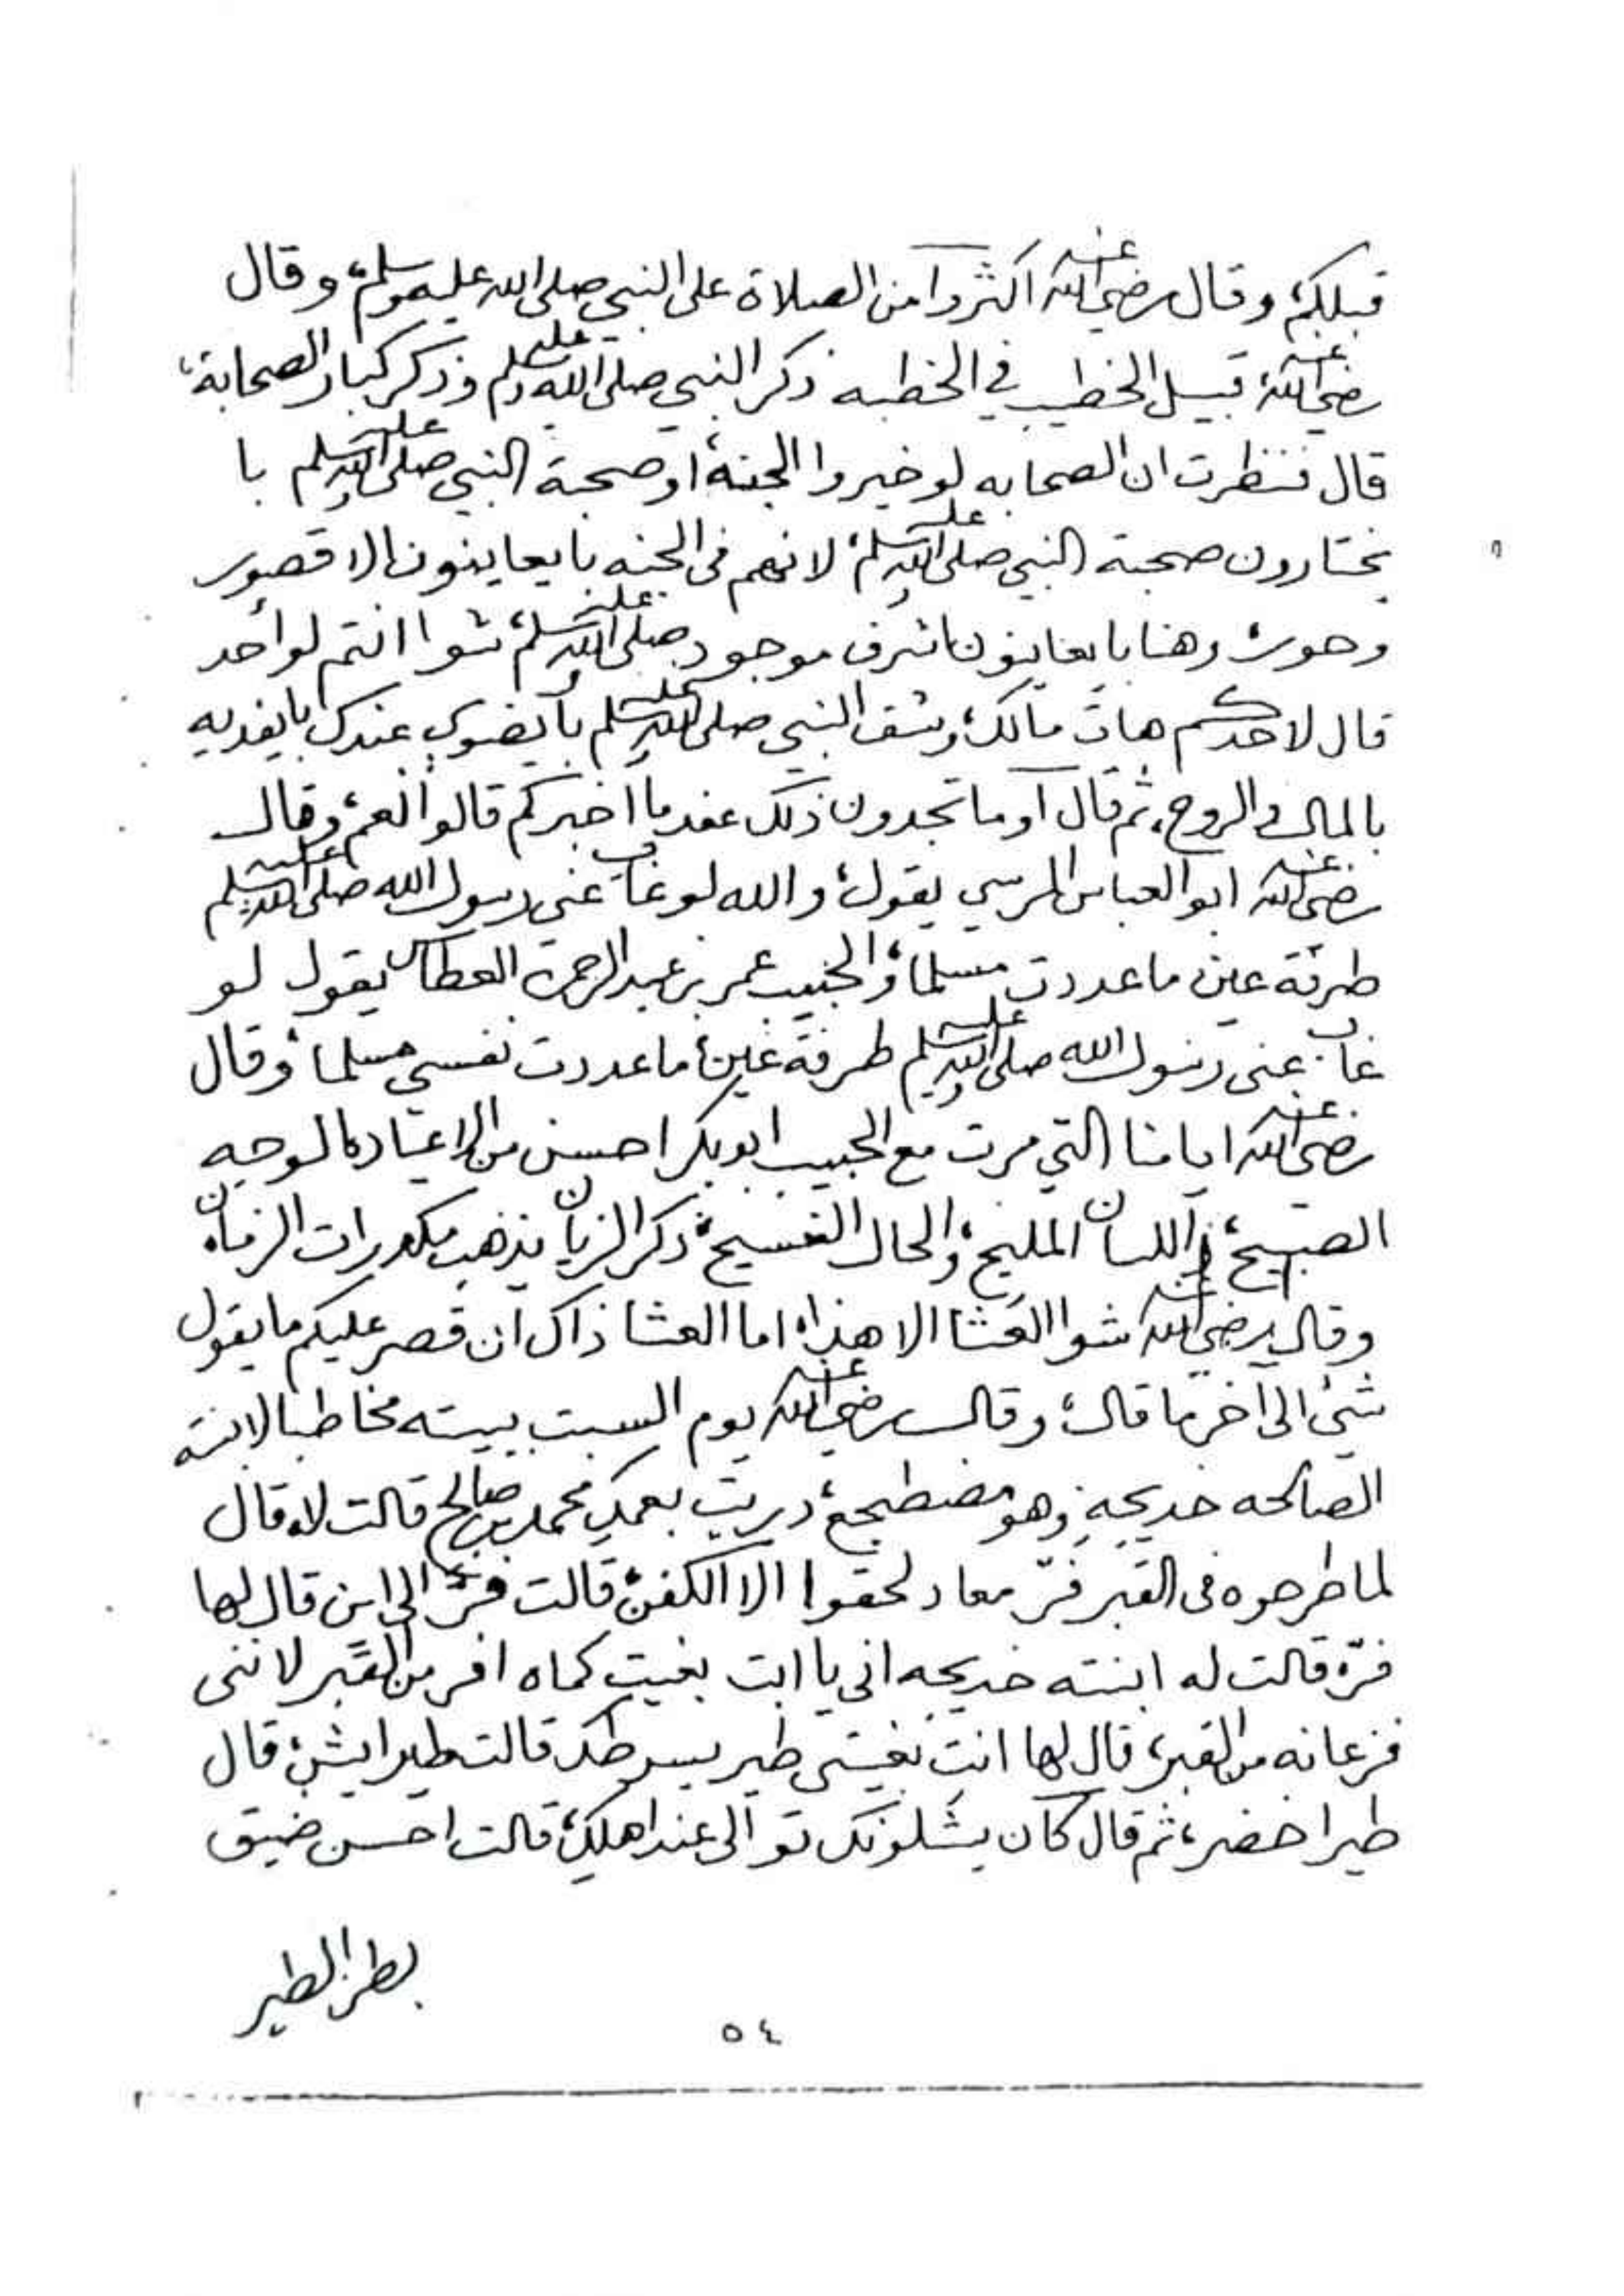 قبلكم، وقال رضي الله عنه اكثروا من الصلاة على النبي صلى الله عليه وسلم، وقال
رضي الله عنه قبيل الخطيب في الخطبه ذكر النبي صلى الله عليه وسلم وذكر كبار الصحابة،
قال فنظرت ان الصحابه لو خيروا الجنة، او صحبة النبي صلى الله عليه وسلم با
يختارون صحبة النبي صلى الله عليه وسلم، لانهم في الجنه بايعاينون الا قصور
وحور، وهنا بايعاينون اشرف موجود صلى الله عليه وسلم، شوا انتم لو احد
قال لاحدكم هات مالك، وشف النبي صلى الله عليه وسلم بايضوي عندك بايفديه
بالمال والروح، ثم قال او ما تجدون ذلك عندما اخبركم قالوا نعم، وقال
رضي الله عنه ابو العباس المرسي يقول، والله لو غاب عني رسول الله صلى الله عليه وسلم
طرفة عين ما عددت مسلما، والحبيب عمر بن عبد الرحمن العطاس يقول لو
غاب عني رسول الله صلى الله عليه وسلم طرفة عين، ما عددت نفسي مسلما، وقال
رضي الله عنه ايامنا التي مرت مع الحبيب ابو بكر احسن من الاعياد، الوجيه
الصبيح، واللسان المليح، والحال الفسيح، ذكر الزيان يذهب مكدرات الزمان،
وقال رضي الله عنه شوا العشا الا هذا، اما العشا ذاك ان قصر عليكم ما يقول
شيئ الى اخر ما قال، وقال رضي الله عنه يوم السبت ببيته مخاطبا لابنته
الصالحه خديجه وهو مضطجع، دريت بعمك محمد بن صالح قالت لا، قال
لما طرحوه في القبر فرّ معاد لحقوا الا الكفن، قالت فرّ الى اين قال لها
فرّ، قالت له ابنته خديجه اني يا ابت بغيت كماه افر من القبر لانني
فزعانه من القبر، قال لها انت بغيتي طير يسرطك قالت طير ايش، قال
طير اخضر، ثم قال كان يشلونك تو الى عند اهلك، قالت احسن ضيق
بطن الطير
٥٤